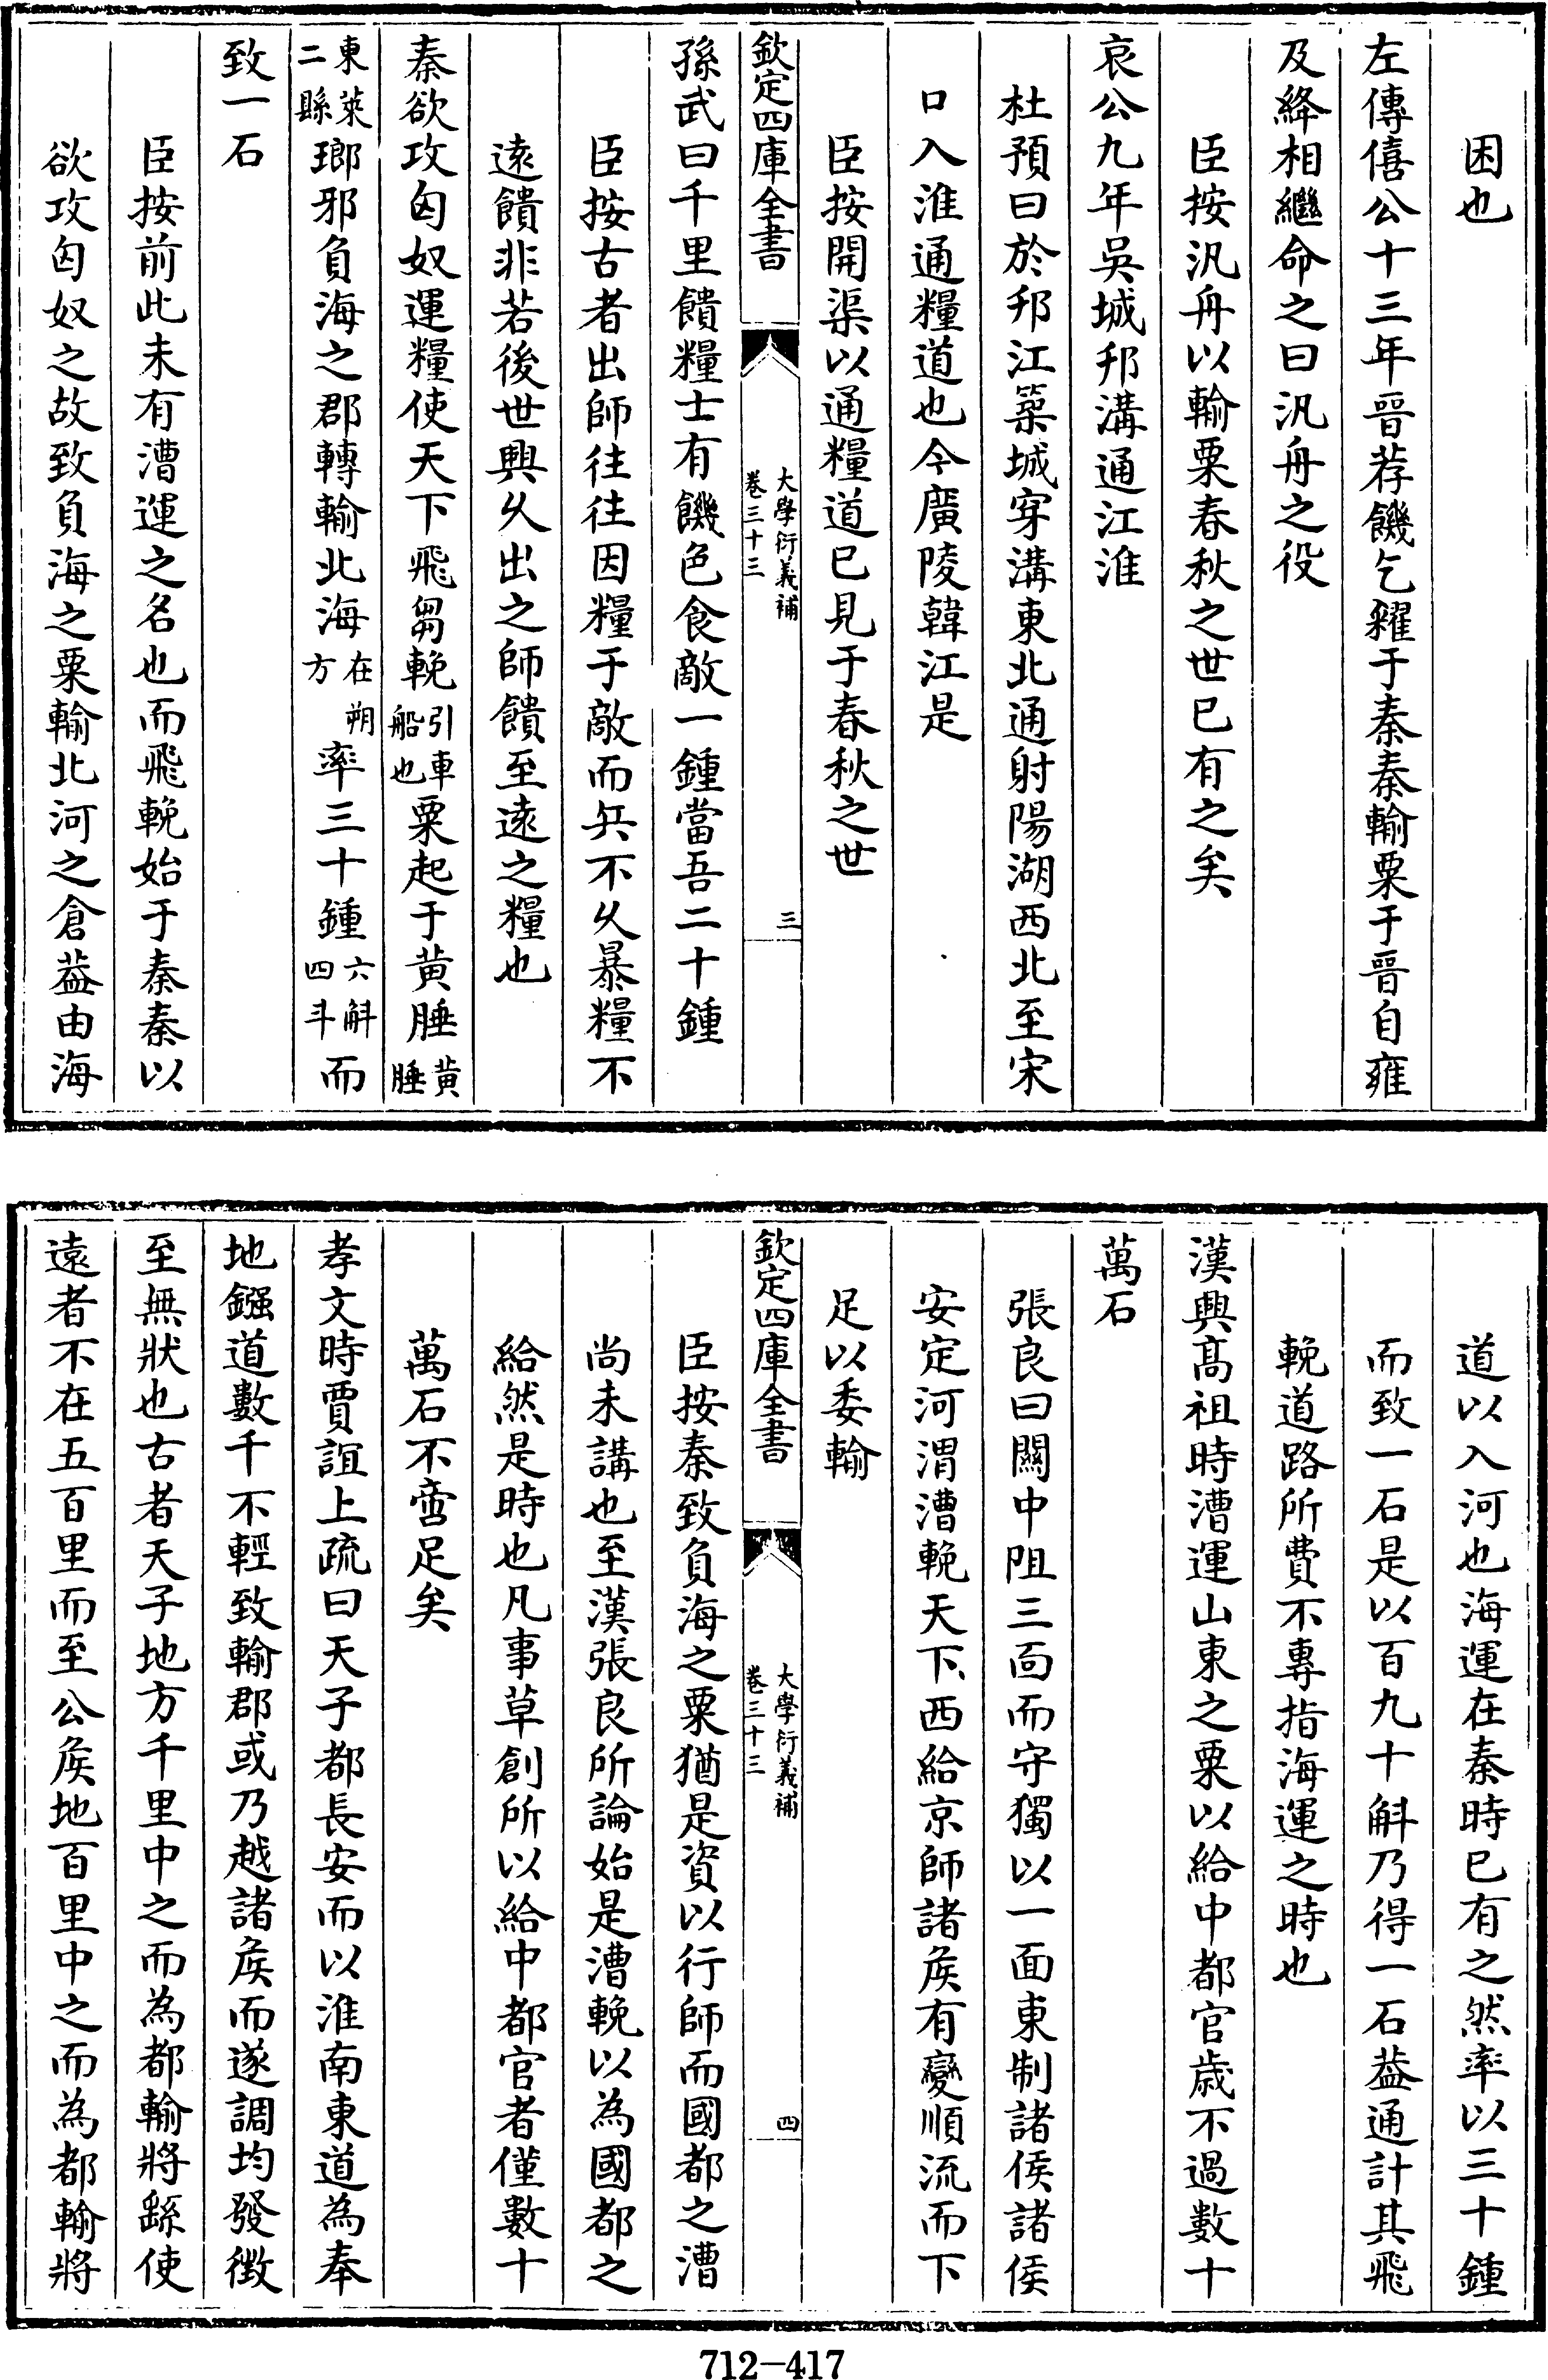 困也
左傳僖公十三年晉荐饑乞糴于秦秦輸粟于晉自雍
及絳相繼命之曰汎舟之役
臣按汎舟以輸粟春秋之世已有之矣
哀公九年吳城邗溝通江淮
杜預曰於邗江築城穿溝東北通射陽湖西北至宋
口入淮通糧道也今廣陵韓江是
臣按開渠以通糧道已見于春秋之世
欽定四庫全書
大學衍義補
卷三十三
三
孫武曰千里饋糧士有饑色食敵一鍾當吾二十鍾
臣按古者出師往往因糧于敵而兵不久暴糧不
遠饋非若後世興久出之師饋至遠之糧也
秦欲攻匈奴運糧使天下飛芻輓引車船也粟起于黄腄黄腄
東萊二縣瑯邪負海之郡轉輸北海在朔方率三十鍾六斛四斗而
致一石
臣按前此未有漕運之名也而飛輓始于秦秦以
欲攻匈奴之故致負海之粟輸北河之倉葢由海
道以入河也海運在秦時已有之然率以三十鍾
而致一石是以百九十斛乃得一石葢通計其飛
輓道路所費不專指海運之時也
漢興髙祖時漕運山東之粟以給中都官歳不過數十
萬石
張良曰關中阻三面而守獨以一面東制諸侯諸侯
安定河渭漕輓天下西給京師諸侯有變順流而下
足以委輸
欽定四庫全書
大學衍義補
卷三十三
四
臣按秦致負海之粟猶是資以行師而國都之漕
尚未講也至漢張良所論始是漕輓以為國都之
給然是時也凡事草創所以給中都官者僅數十
萬石不啻足矣
孝文時賈誼上疏曰天子都長安而以淮南東道為奉
地鏹道數千不輕致輸郡或乃越諸侯而遂調均發徴
至無狀也古者天子地方千里中之而為都輸將繇使
遠者不在五百里而至公侯地百里中之而為都輸將
712-417